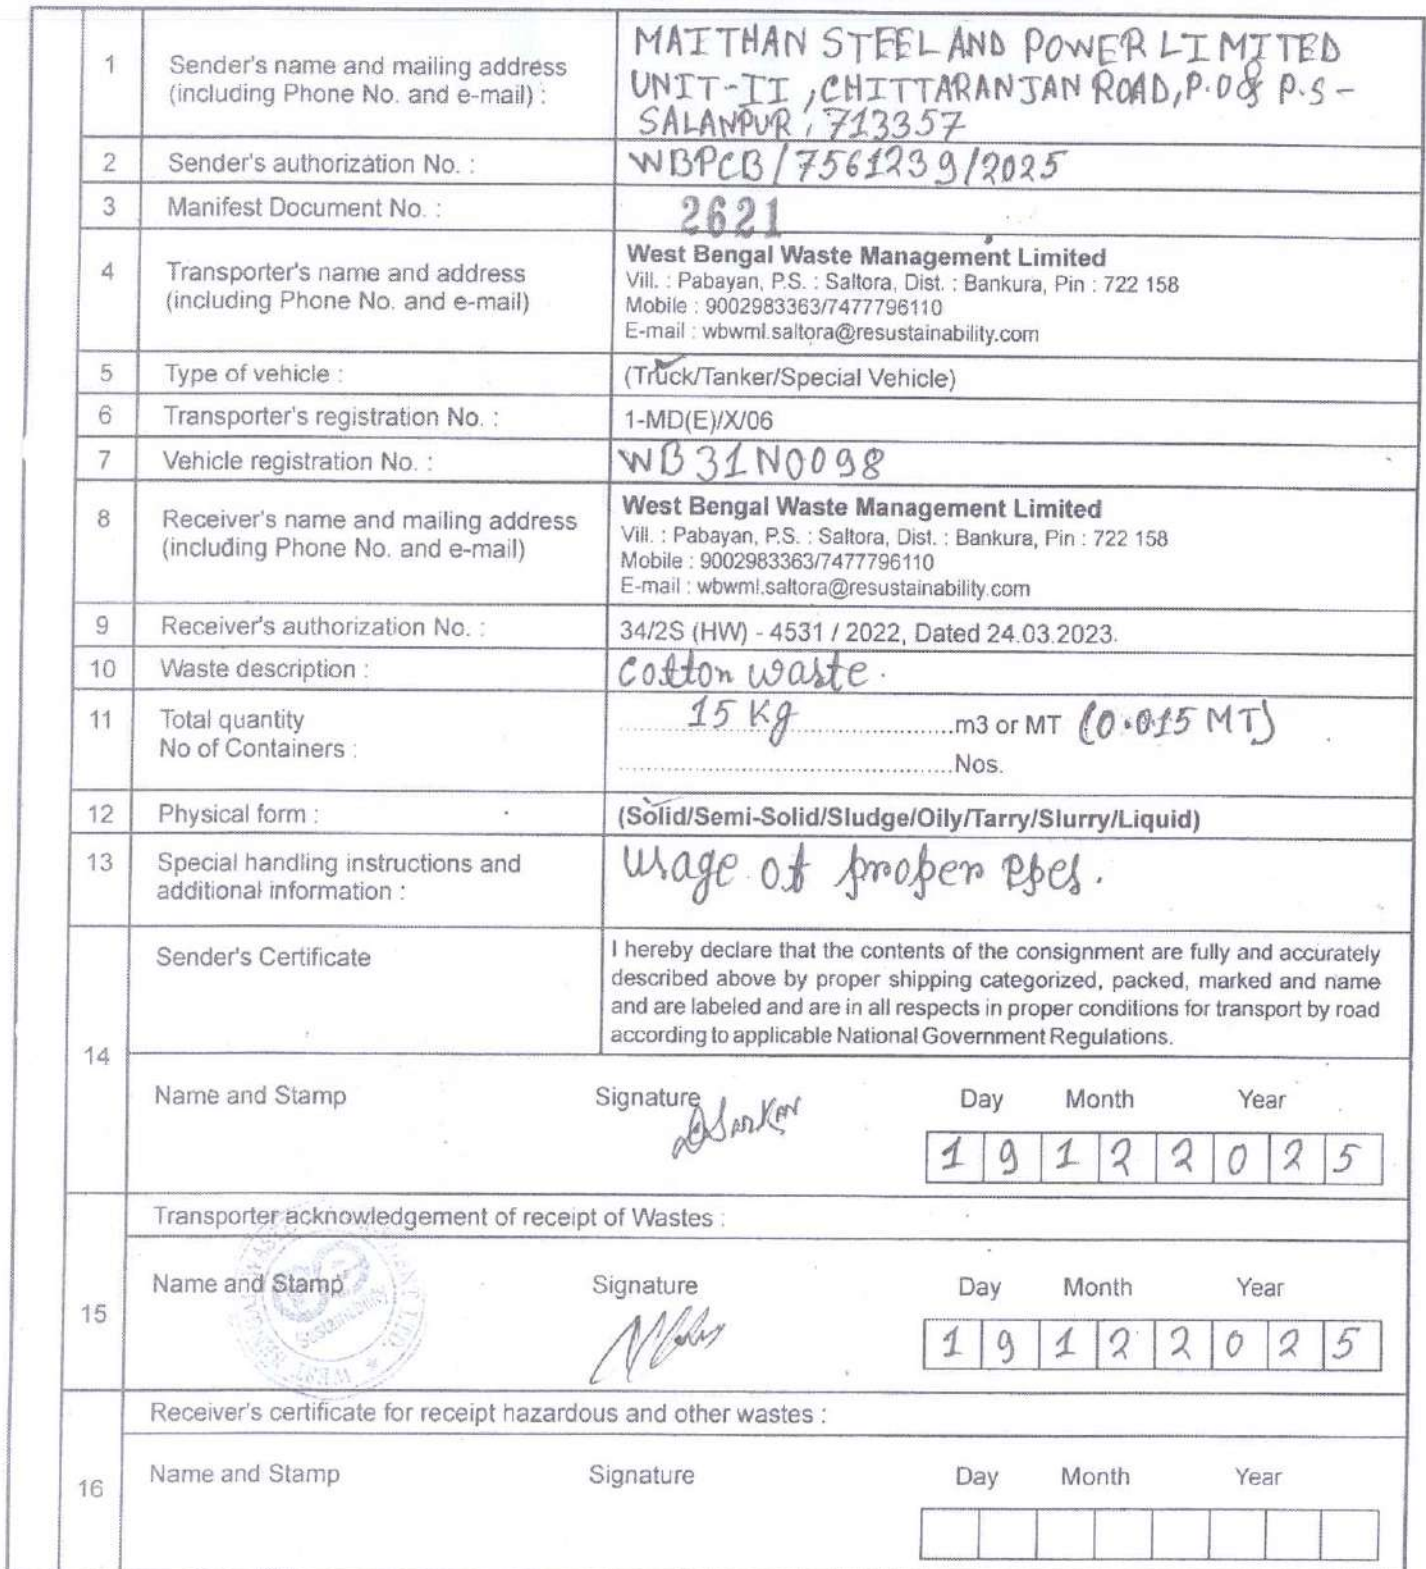 1
Sender's name and mailing address
(including Phone No. and e-mail) :
MAITHAN STEEL AND POWER LIMITED
UNIT-II, CHITTARANJAN ROAD, P.O & P.S -
SALANPUR, 713357
2
Sender's authorization No. :
WBPCB/7561239/2025
3
Manifest Document No. :
2621
4
Transporter's name and address
(including Phone No. and e-mail)
West Bengal Waste Management Limited
Vill. : Pabayan, P.S. : Saltora, Dist. : Bankura, Pin : 722 158
Mobile : 9002983363/7477796110
E-mail : wbwml.saltora@resustainability.com
5
Type of vehicle :
(Truck/Tanker/Special Vehicle)
6
Transporter's registration No. :
1-MD(E)/X/06
7
Vehicle registration No. :
WB31N0098
8
Receiver's name and mailing address
(including Phone No. and e-mail)
West Bengal Waste Management Limited
Vill. : Pabayan, P.S. : Saltora, Dist. : Bankura, Pin : 722 158
Mobile : 9002983363/7477796110
E-mail : wbwml.saltora@resustainability.com
9
Receiver's authorization No. :
34/2S (HW) - 4531 / 2022, Dated 24.03.2023.
10
Waste description :
Cotton waste.
11
Total quantity
15 Kg m3 or MT (0.015 MT)
No of Containers :
Nos.
12
Physical form :
(Solid/Semi-Solid/Sludge/Oily/Tarry/Slurry/Liquid)
13
Special handling instructions and
additional information :
Usage of proper PPes.
14
Sender's Certificate
I hereby declare that the contents of the consignment are fully and accurately
described above by proper shipping categorized, packed, marked and name
and are labeled and are in all respects in proper conditions for transport by road
according to applicable National Government Regulations.
Name and Stamp Signature Day Month Year
DSarkar
1 9 1 2 2 0 2 5
15
Transporter acknowledgement of receipt of Wastes :
Name and Stamp Signature Day Month Year
Sustainability
WEST BENGAL WASTE
1 9 1 2 2 0 2 5
16
Receiver's certificate for receipt hazardous and other wastes :
Name and Stamp Signature Day Month Year